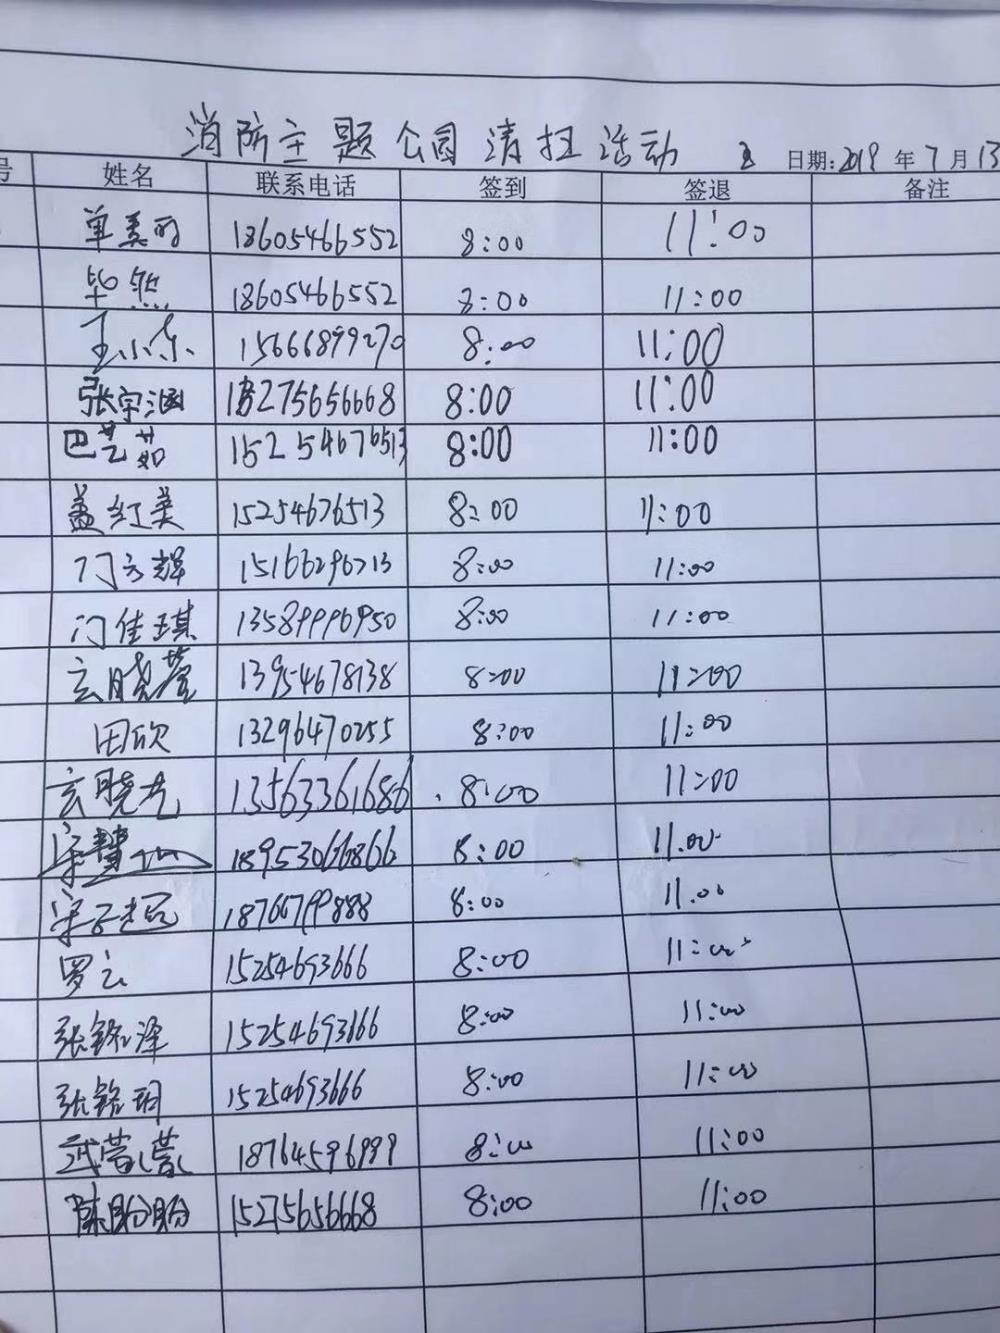 消防主题公园清扫活动 日期:2019年7月13
号 姓名 联系电话 签到 签退 备注
单美丽 18605466552 8:00 11:00
毕然 18605466552 8:00 11:00
王小东 15666899270 8:00 11:00
张宇涵 15275656668 8:00 11:00
巴艺茹 15254676513 8:00 11:00
盖红美 15254676513 8:00 11:00
门方辉 15166296713 8:00 11:00
门佳琪 13589996950 8:00 11:00
玄晓莹 13954678138 8:00 11:00
田欣 13296470255 8:00 11:00
玄晓光 13563361686 8:00 11:00
宋慧 18953066866 8:00 11.00
宋子 18766799888 8:00 11.00
罗云 15254693666 8:00 11:00
张铭泽 15254693666 8:00 11:00
张铭玥 15254693666 8:00 11:00
武莹莹 18764596999 8:00 11:00
陈盼盼 15275656668 8:00 11:00